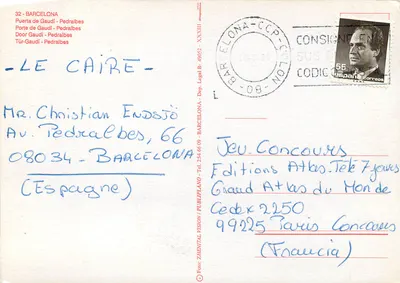 32 - BARCELONA
Puerta de Gaudí - Pedralbes
Porta de Gaudí - Pedralbes
Door Gaudí - Pedralbes
Tür-Gaudí - Pedralbes
- LE CAIRE -
Mr. Christian Endsjö
Av. Pedralbes, 66
08034 - BARCELONA
(Espagne)
BARCELONA-CCP-COLON
-08-
CONSIGNE
CODIGO
55
Jeu Concours
Editions Atlas-Télé 7 jours
Grand Atlas du Monde
Cedex 2250
99225 Paris Concours
(Francia)